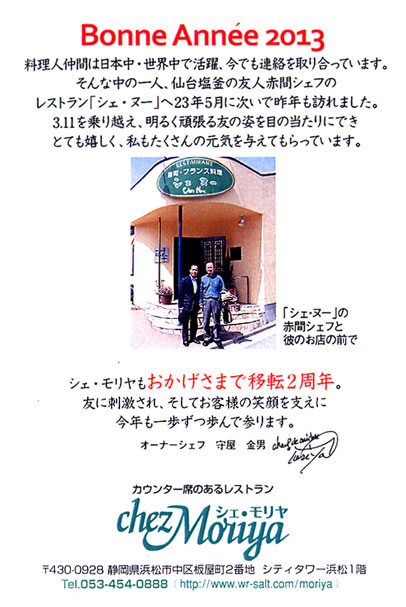 Bonne Année 2013
料理人仲間は日本中・世界中で活躍、今でも連絡を取り合っています。
そんな中の一人、仙台塩釜の友人赤間シェフの
レストラン「シェ・ヌー」へ23年5月に次いで昨年も訪れました。
3.11を乗り越え、明るく頑張る友の姿を目の当たりにでき
とても嬉しく、私もたくさんの元気を与えてもらっています。
RESTAURANT
港町・フランス料理
シェ ヌー
Chez Nous
「シェ・ヌー」の
赤間シェフと
彼のお店の前で
シェ・モリヤもおかげさまで移転2周年。
友に刺激され、そしてお客様の笑顔を支えに
今年も一歩ずつ歩んで参ります。
オーナーシェフ 守屋 金男
カウンター席のあるレストラン
シェ・モリヤ
chez Moriya
〒430-0928 静岡県浜松市中区板屋町2番地 シティタワー浜松1階
Tel.053-454-0888 〔 http://www.wr-salt.com/moriya 〕